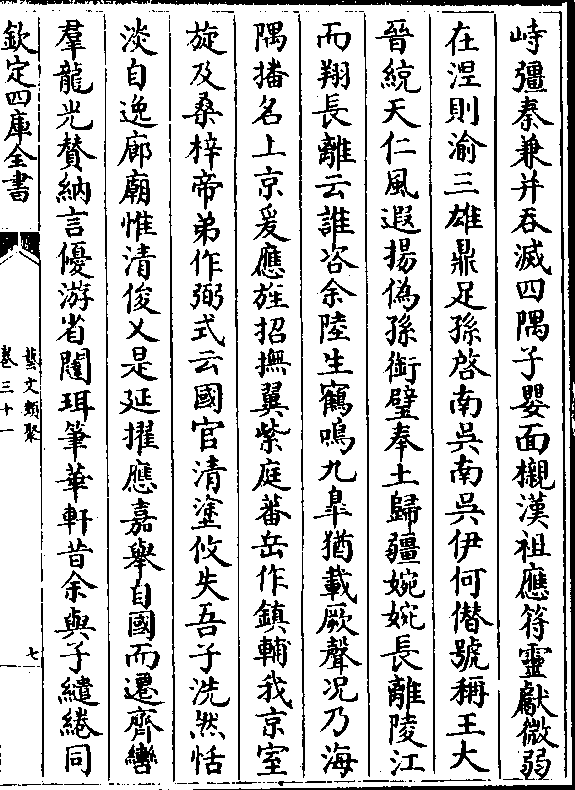 峙彊秦兼并吞滅四隅子嬰面櫬漢祖應符靈獻微弱
在涅則渝三雄鼎足孫啓南吳南吳伊何僣號稱王大
晉統天仁風遐揚偽孫銜璧奉土歸疆婉婉長離陵江
而翔長離云誰咨余陸生鶴鳴九臯猶載厥聲况乃海
隅播名上京爰應旌招撫翼紫庭蕃岳作鎮輔我京室
旋及桑梓帝弟作弼式云國官清塗攸失吾子洗然恬
淡自逸廊廟惟清俊乂是延擢應嘉舉自國而遷齊轡
羣龍光賛納言優游省闥珥筆華軒昔余與子繾綣同
欽定四庫全書
藝文類聚
卷三十一
七